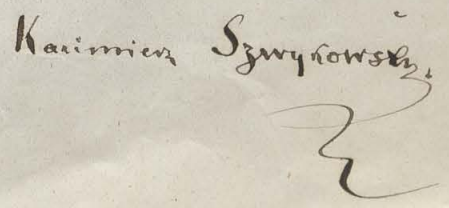 Kazimierz Szwykowski.